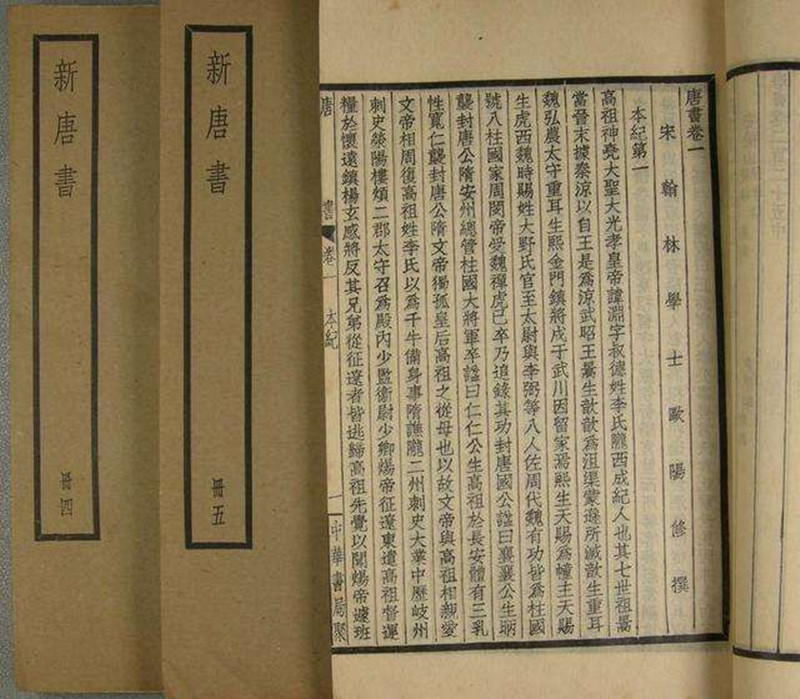 新唐書
冊四
新唐書
冊五
唐書卷一
宋翰林學士歐陽修撰
本紀第一
高祖神堯大聖大光孝皇帝諱淵字叔德姓李氏隴西成紀人也其七世祖暠
當晉末據秦涼以自王是爲涼武昭王暠生歆歆爲沮渠蒙遜所滅歆生重耳
魏弘農太守重耳生熙金門鎮將戍于武川因留家焉熙生天賜爲幢主天賜
生虎西魏時賜姓大野氏官至太尉與李弼等八人佐周代魏有功皆爲柱國
號八柱國家周閔帝受魏禪虎已卒乃追錄其功封唐國公諡曰襄襄公生昞
襲封唐公隋安州總管柱國大將軍卒諡曰仁仁公生高祖於長安體有三乳
性寬仁襲封唐公隋文帝獨孤皇后高祖之從母也以故文帝與高祖相親愛
文帝相周復高祖姓李氏以爲千牛備身事隋譙隴二州刺史大業中歷岐州
刺史滎陽樓煩二郡太守召爲殿內少監衛尉少卿煬帝征遼東遣高祖督運
糧於懷遠鎮楊玄感將反其兄弟從征遼者皆逃歸高祖先覺以聞煬帝遽班
唐書 卷一 本紀 一 中華書局聚